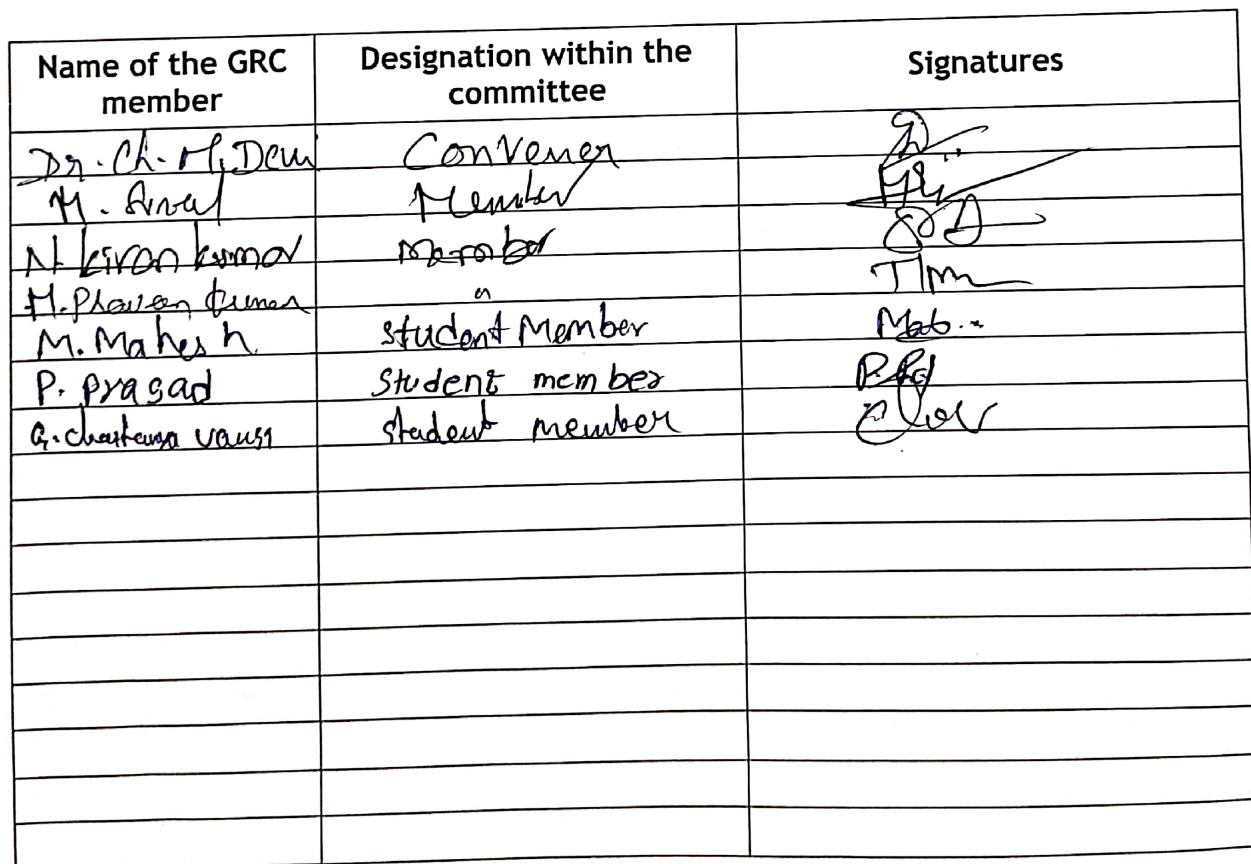 Name of the GRC member Designation within the committee Signatures
Dr. Ch. M. Devi Convener
M. Member
N. kiran kumar Member
M. Praveen kumar "
M. Mahesh. student Member
P. prasad Student member
G. chaitanya vamsi student member